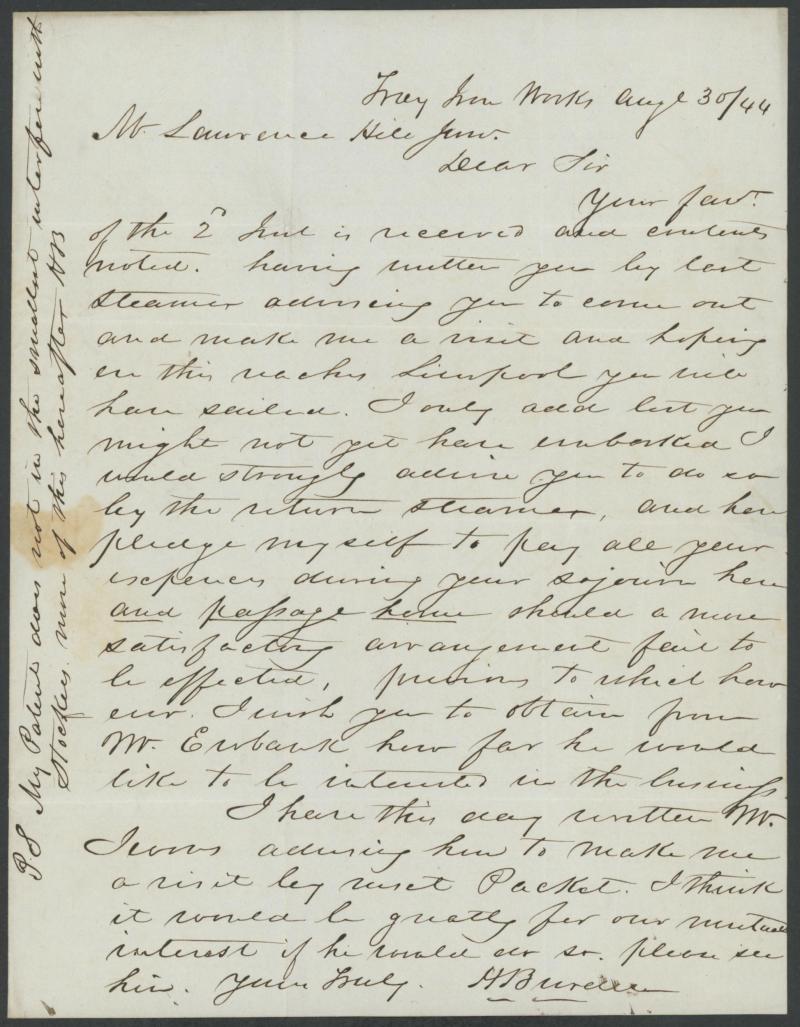 Troy Iron Works Augt 30/44
Mr. Lawrence Hill Junr.
Dear Sir
Your favr.
of the 2d Inst is received and contents
noted. having written you by last
steamer advising you to come out
and make me a visit and hoping
ere this reaches Liverpool you will
have sailed. I only add lest you
might not yet have embarked I
would strongly advise you to do so
by the return steamer, and here
pledge myself to pay all your
expences during your sojourn here
and passage home should a more
satisfactory arrangement fail to
be effected, previous to which how
evr. I wish you to obtain from
Mr. Ewbank how far he would
like to be intersted in the business
I have this day written Mr.
advising him to make me
a visit by next Packet. I think
it would be greatly for our mutual
interest if he would do so. please see
him. Yours Truly. H Burden
P.S My Patent does not in the smallest interfere with
Stockers more of this hereafter HB